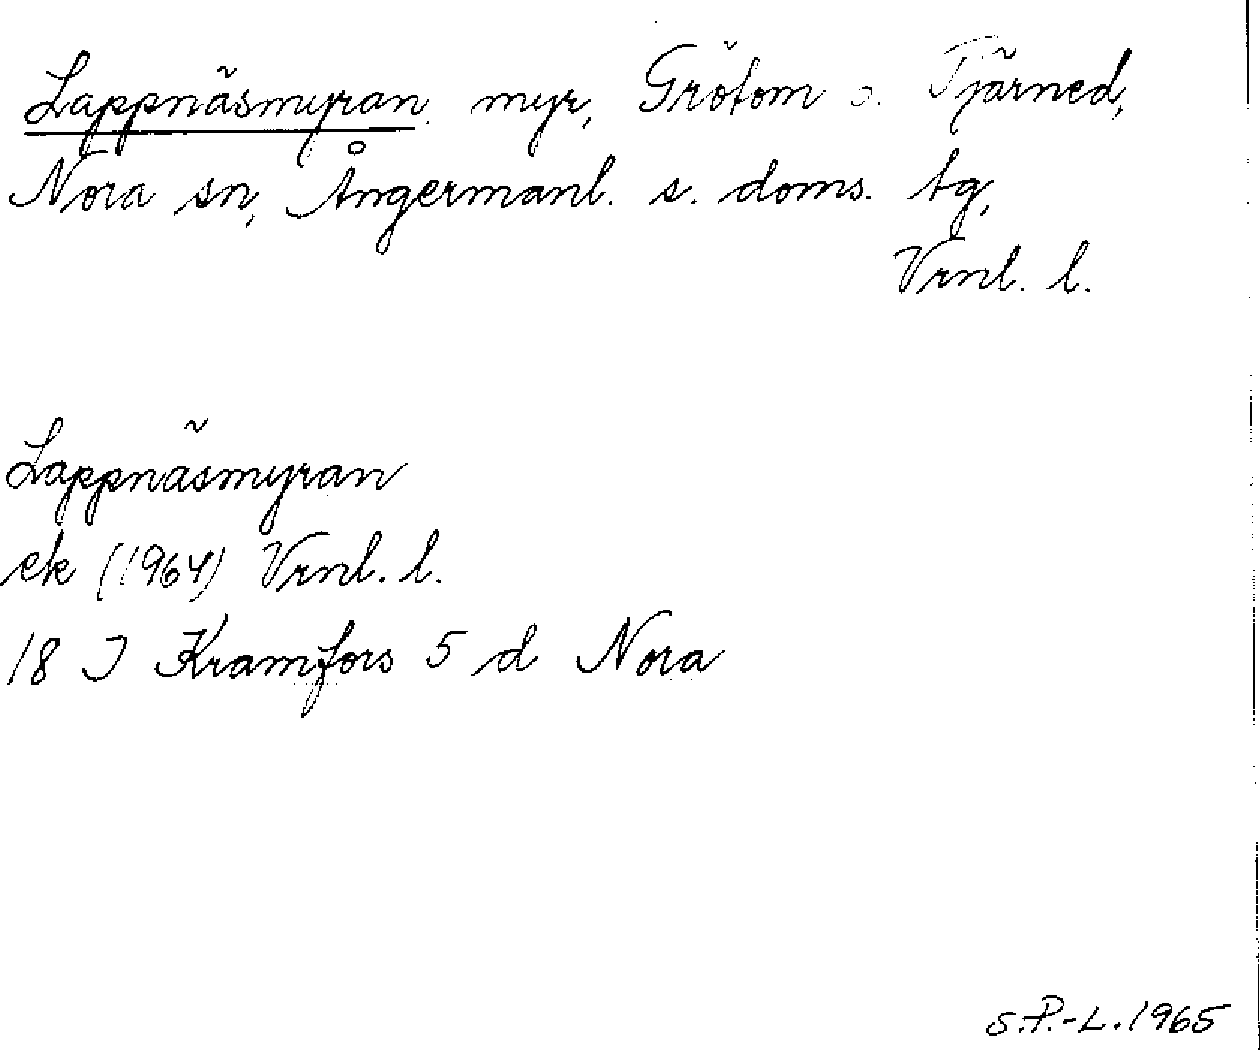 Lappnäsmyran, myr, Grötom o. Tjärned,
Nora sn, Ångermanl. s. doms. tg,
Vrnl. l.
Lappnäsmyran
ek (1964) Vrnl. l.
18 I Kramfors 5 d Nora
S.P.-L. 1965